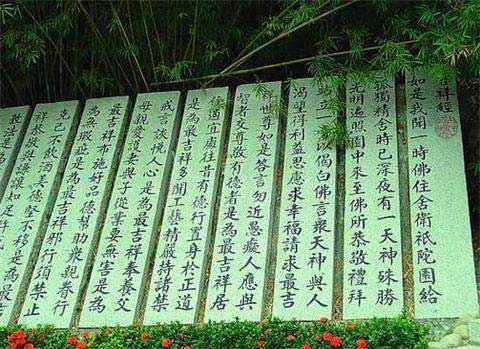 吉祥經
如是我聞一時佛住舍衛祇陀園給
孤獨精舍時已深夜有一天神殊勝
光明遍照園中來至佛所恭敬禮拜
站立一旁以偈白佛言眾天神與人
渴望得利益思慮求幸福請求最吉
祥世尊如是答言勿近愚癡人應與
智者交尊敬有德者是為最吉祥居
住適宜處往昔有德行置身於正道
是為最吉祥多聞工藝精嚴持諸禁
戒言談悅人心是為最吉祥奉養父
母親愛護妻與子從業要無害是為
最吉祥布施好品德幫助眾親眷行
為無瑕疵是為最吉祥邪行須禁止
克己不飲酒美德堅不移是為最吉
祥恭敬與謙讓知足
法是為最